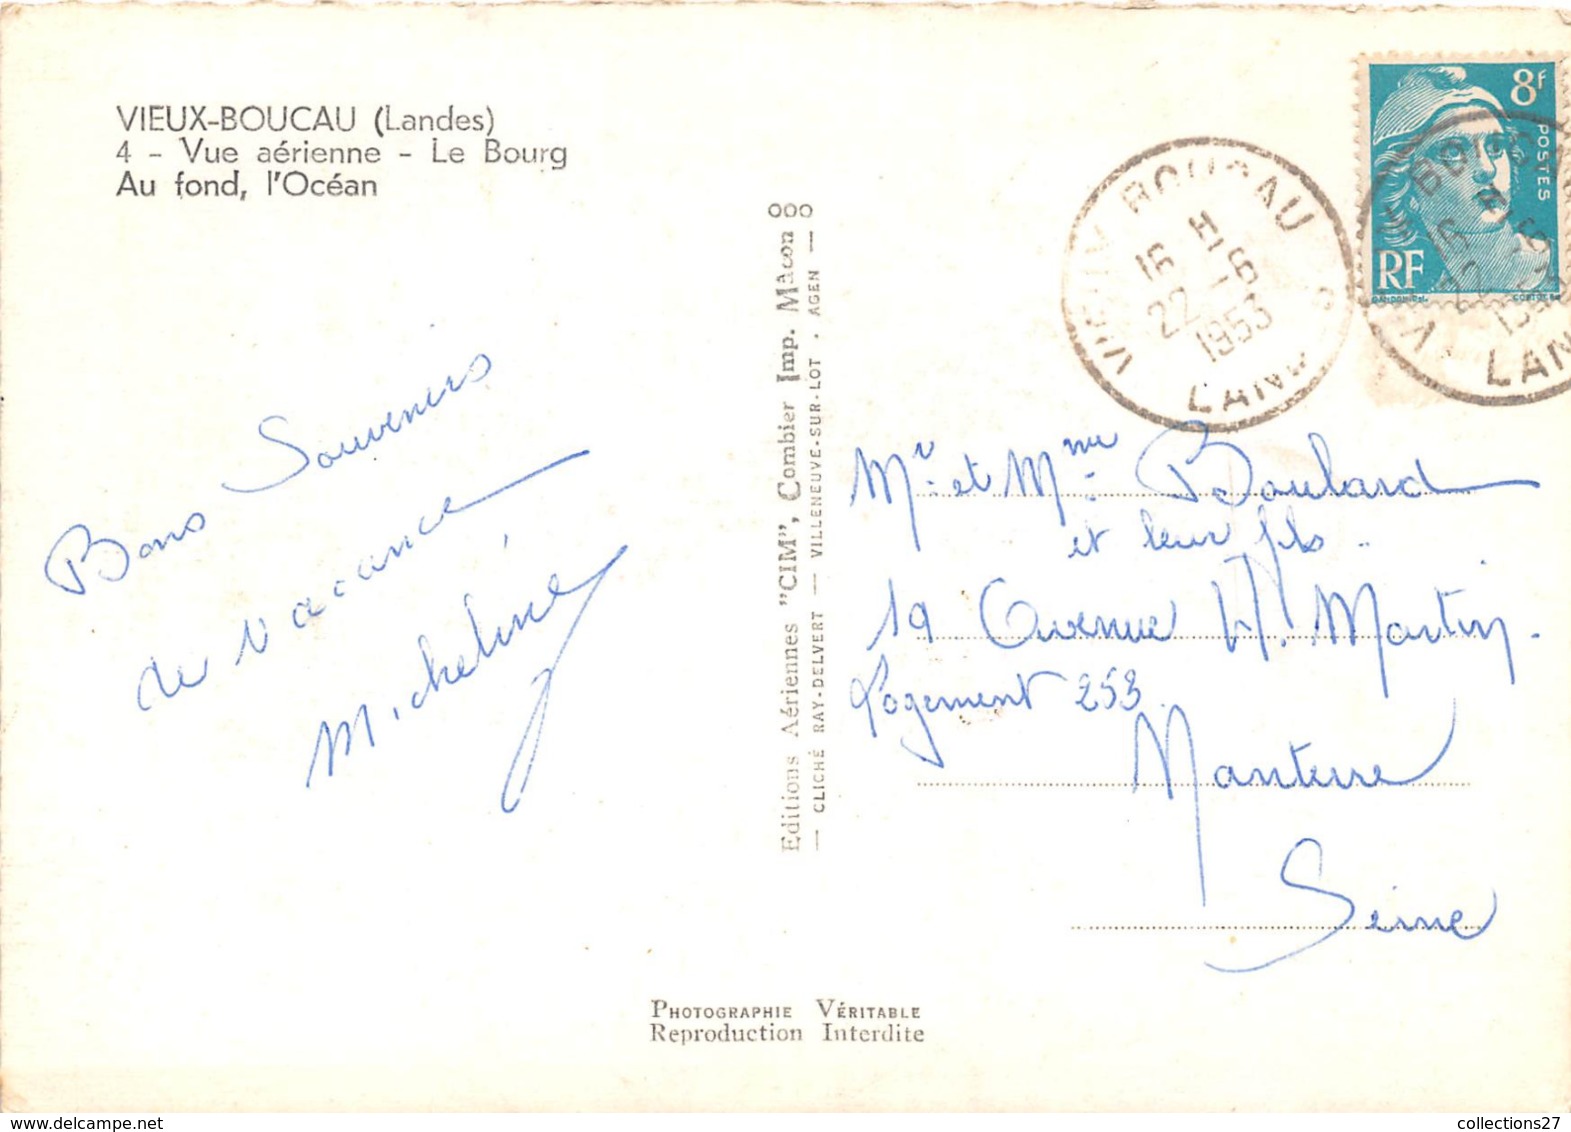 VIEUX-BOUCAU (Landes)
4 - Vue aérienne - Le Bourg
Au fond, l'Océan
Bons Souvenirs
de vacance
Micheline
Editions Aériennes "CIM", Combier Imp. Mâcon
— CLICHÉ RAY-DELVERT — VILLENEUVE-SUR-LOT . AGEN —
8f
POSTES
RF
VIEUX BOUCAU
16 H
22 - 6
1953
LAND
BOUCAU
16 H
22
LAN
Mr. et Mme. Boulard
et leur fils.
19 Avenue H. Martin.
Logement 253.
Nanterre
Seine
PHOTOGRAPHIE VÉRITABLE
Reproduction Interdite
www.delcampe.net
collections27